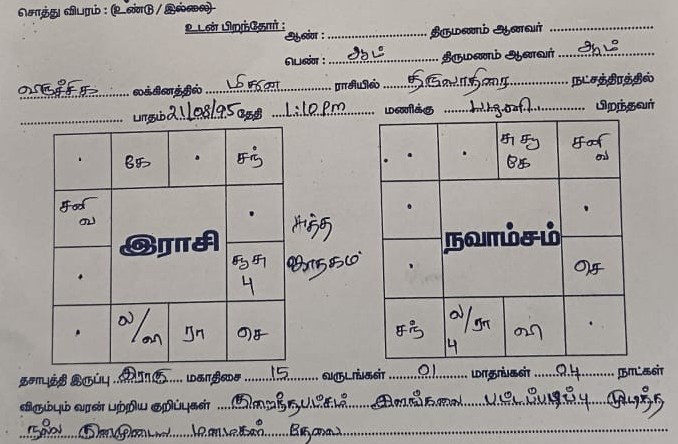 சொத்து விபரம் : (உண்டு / இல்லை)
உடன் பிறந்தோர் : ஆண் : திருமணம் ஆனவர்
பெண் : ஆம் திருமணம் ஆனவர் ஆம்
விருச்சிக லக்கினத்தில் மிதுன ராசியில் திருவாதிரை நட்சத்திரத்தில்
பாதம் 21/08/95 தேதி 1:10 Pm மணிக்கு பிறந்தவர்
கே சந்
சனி வ
சூ சு பு
ல/வி ரா செ
இராசி
சுத்த
ஜாதகம்
சு சூ கே சனி வ
செ
சந் ல/ரா பு வி
நவாம்சம்
தசாபுத்தி இருப்பு இராகு மகாதிசை 15 வருடங்கள் 01 மாதங்கள் 04 நாட்கள்
விரும்பும் வரன் பற்றிய குறிப்புகள் குறைந்தபட்சம் இளங்கலை பட்டப்படிப்பு முடித்த
நல்ல குணமுடைய மணமகன் தேவை